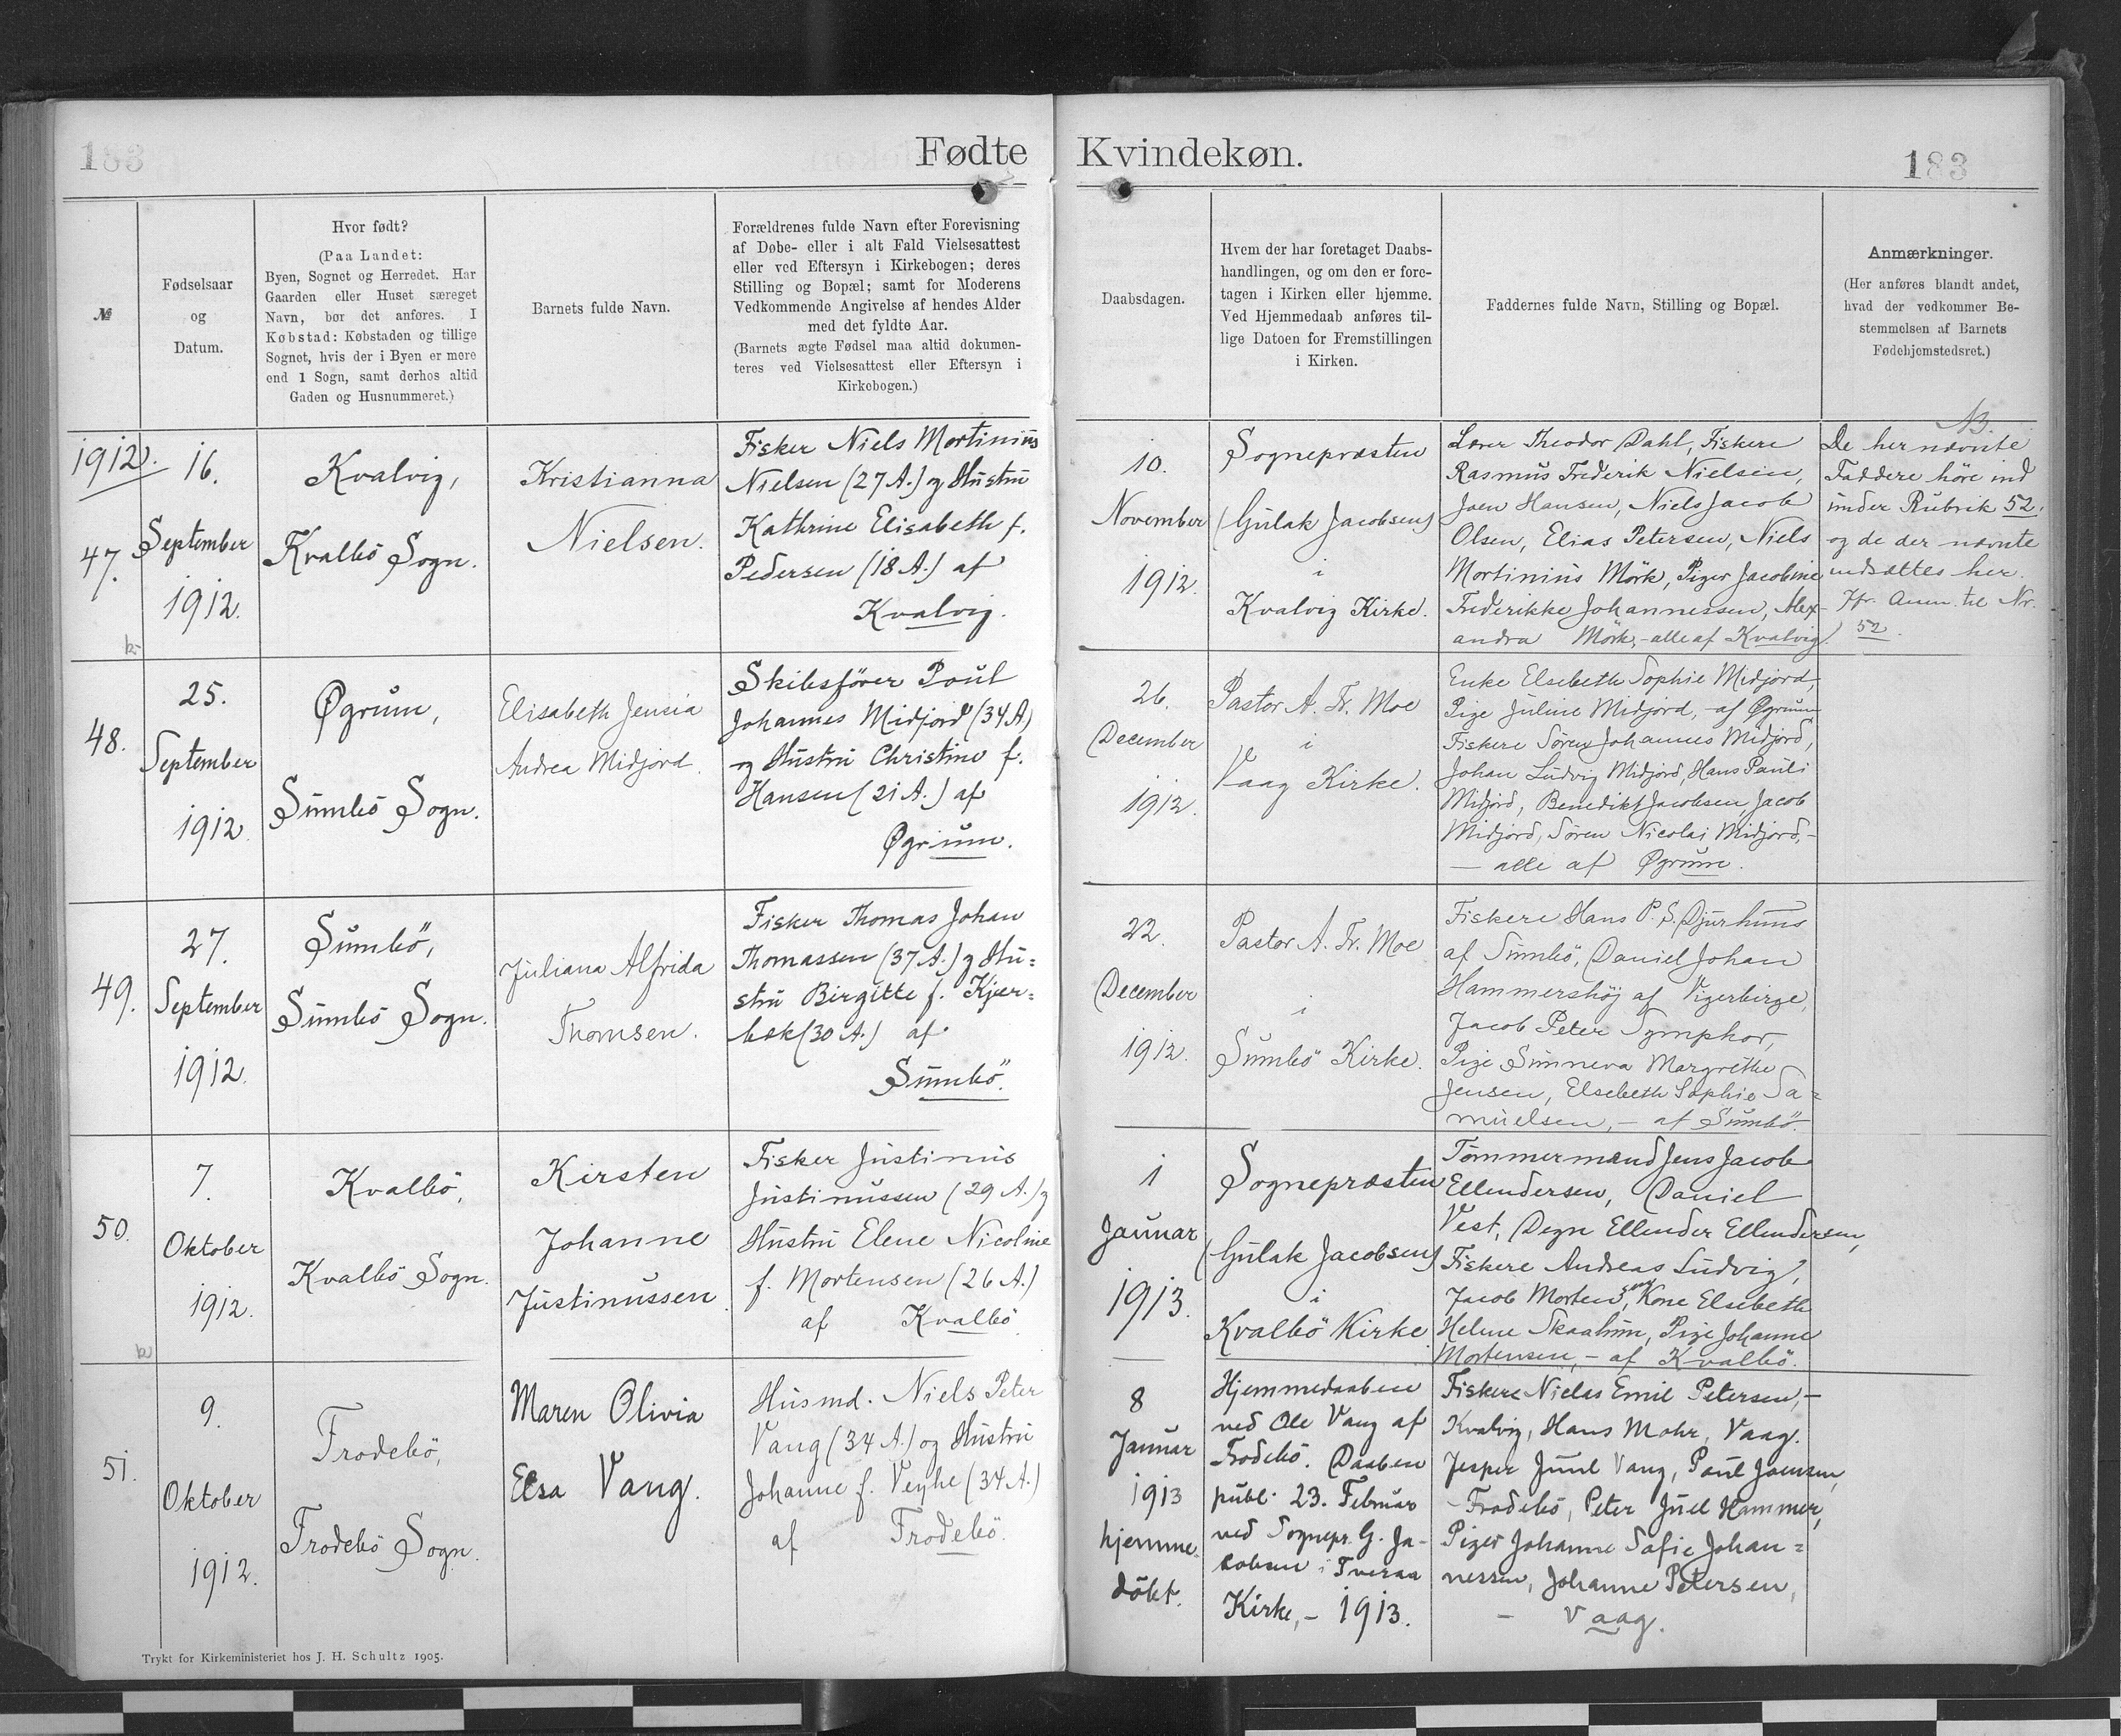 183
Fødte
Kvindekøn.
183
№
Fødselsaar
og
Datum.
Hvor født?
(Paa Landet:
Byen, Sognet og Herredet. Har
Gaarden eller Huset særeget
Navn, bør det anføres. I
Købstad: Købstaden og tillige
Sognet, hvis der i Byen er mere
end 1 Sogn, samt derhos altid
Gaden og Husnummeret.)
Barnets fulde Navn.
Forældrenes fulde Navn efter Forevisning
af Døbe- eller i alt Fald Vielsesattest
eller ved Eftersyn i Kirkebogen; deres
Stilling og Bopæl; samt for Moderens
Vedkommende Angivelse af hendes Alder
med det fyldte Aar.
(Barnets ægte Fødsel maa altid dokumen-
teres ved Vielsesattest eller Eftersyn i
Kirkebogen.)
Daabsdagen.
Hvem der har foretaget Daabs-
handlingen, og om den er fore-
tagen i Kirken eller hjemme.
Ved Hjemmedaab anføres til-
lige Datoen for Fremstillingen
i Kirken.
Faddernes fulde Navn, Stilling og Bopæl.
Anmærkninger.
(Her anføres blandt andet,
hvad der vedkommer Be-
stemmelsen af Barnets
Fødehjemstedsret.)
1912.
47.
16.
September
1912.
Kvalvig,
Kvalbö Sogn.
Kristianna
Nielsen.
Fisker Niels Mortinius
Nielsen (27 A.) og Hustru
Kathrine Elisabeth f.
Pedersen (18 A.) af
Kvalvig.
10.
November
1912.
Sognepræsten
(Gulak Jacobsen)
i
Kvalvig Kirke.
Lærer Theodor Dahl, Fiskere
Rasmus Frederik Nielsen,
Joen Hansen, Niels Jacob
Olsen, Elias Petersen, Niels
Mortinius Mörk, Piger Jacobine
Frederikke Johannessen, Alex-
andra Mörk, - alle af Kvalvig.
NB.
De her nævnte
Faddere höre ind
under Rubrik 52.
og de der nævnte
indsættes her.
Jfr. Anm. til Nr.
52.
48.
25.
September
1912.
Øgrum,
Sumbö Sogn.
Elisabeth Jensia
Andrea Midjord.
Skibsförer Poul
Johannes Midjord (34 A.)
og Hustru Christine f.
Hansen (21 A.) af
Øgrum.
26.
December
1912.
Pastor A. Fr. Moe
i
Vaag Kirke.
Enke Elsebeth Sophie Midjord,
Pige Juline Midjord, - af Øgrum
Fiskere Sören Johannes Midjord,
Johan Ludvig Midjord, Hans Pauli
Midjord, Benedikt Jacobsen, Jacob
Midjord, Sören Nicolai Midjord, -
- alle af Øgrum.
49.
27.
September
1912.
Sumbö,
Sumbö Sogn.
Juliana Alfrida
Thomsen.
Fisker Thomas Johan
Thomassen (37 A.) og Hu=
stru Birgitte f. Kjær=
bæk (30 A.) af
Sumbö.
22.
December
1912.
Pastor A. Fr. Moe
i
Sumbö Kirke.
Fiskere Hans P. S. Djurhuus
af Sumbö, Daniel Johan
Hammershöj af Vigerbirge,
Jacob Peter Symphor,
Pige Sunneva Margrethe
Jensen, Elsebeth Sophie Sa=
muelsen, - af Sumbö.
50.
7.
Oktober
1912.
Kvalbö,
Kvalbö Sogn.
Kirsten
Johanne
Justinussen
Fisker Justinus
Justinussen (29 A.) og
Hustru Elene Nicoline
f. Mortensen (26 A.)
af Kvalbö
1
Januar
1913.
Sognepræsten
(Gulak Jacobsen)
i
Kvalbö Kirke
Tömmermænd Jens Jacob
Ellendersen, Daniel
Vest, Degn Ellender Ellendersen,
Fiskere Andreas Ludvig,
Jacob Mortensen, Kone Elsebeth
Helene Skaalum, Pige Johanne
Mortensen, - af Kvalbö.
51.
9.
Oktober
1912.
Frodebö,
Frodebö Sogn.
Maren Olivia
Elsa Vang.
Husmd. Niels Peter
Vang (34 A.) og Hustru
Johanne f. Veyhe (34 A.)
af Frodebö.
8
Januar
1913
hjemme-
döbt.
Hjemmedaaben
ved Ole Vang af
Frodebö. Daaben
publ. 23. Februar
ved Sognepr. G. Ja-
cobsen i Tveraa
Kirke, - 1913.
Fiskere Niclas Emil Petersen, -
Kvalvig, Hans Mohr, Vaag.
Jesper Juul Vang, Paul Joensen,
- Frodebö, Peter Juel Hammer,
Piger Johanne Sofie Johan=
nessen, Johanne Petersen,
- Vaag.
Trykt for Kirkeministeriet hos J. H. Schultz 1905.